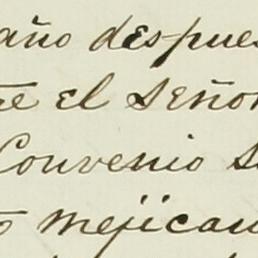 año despues
el Señor
Convenio
mejican